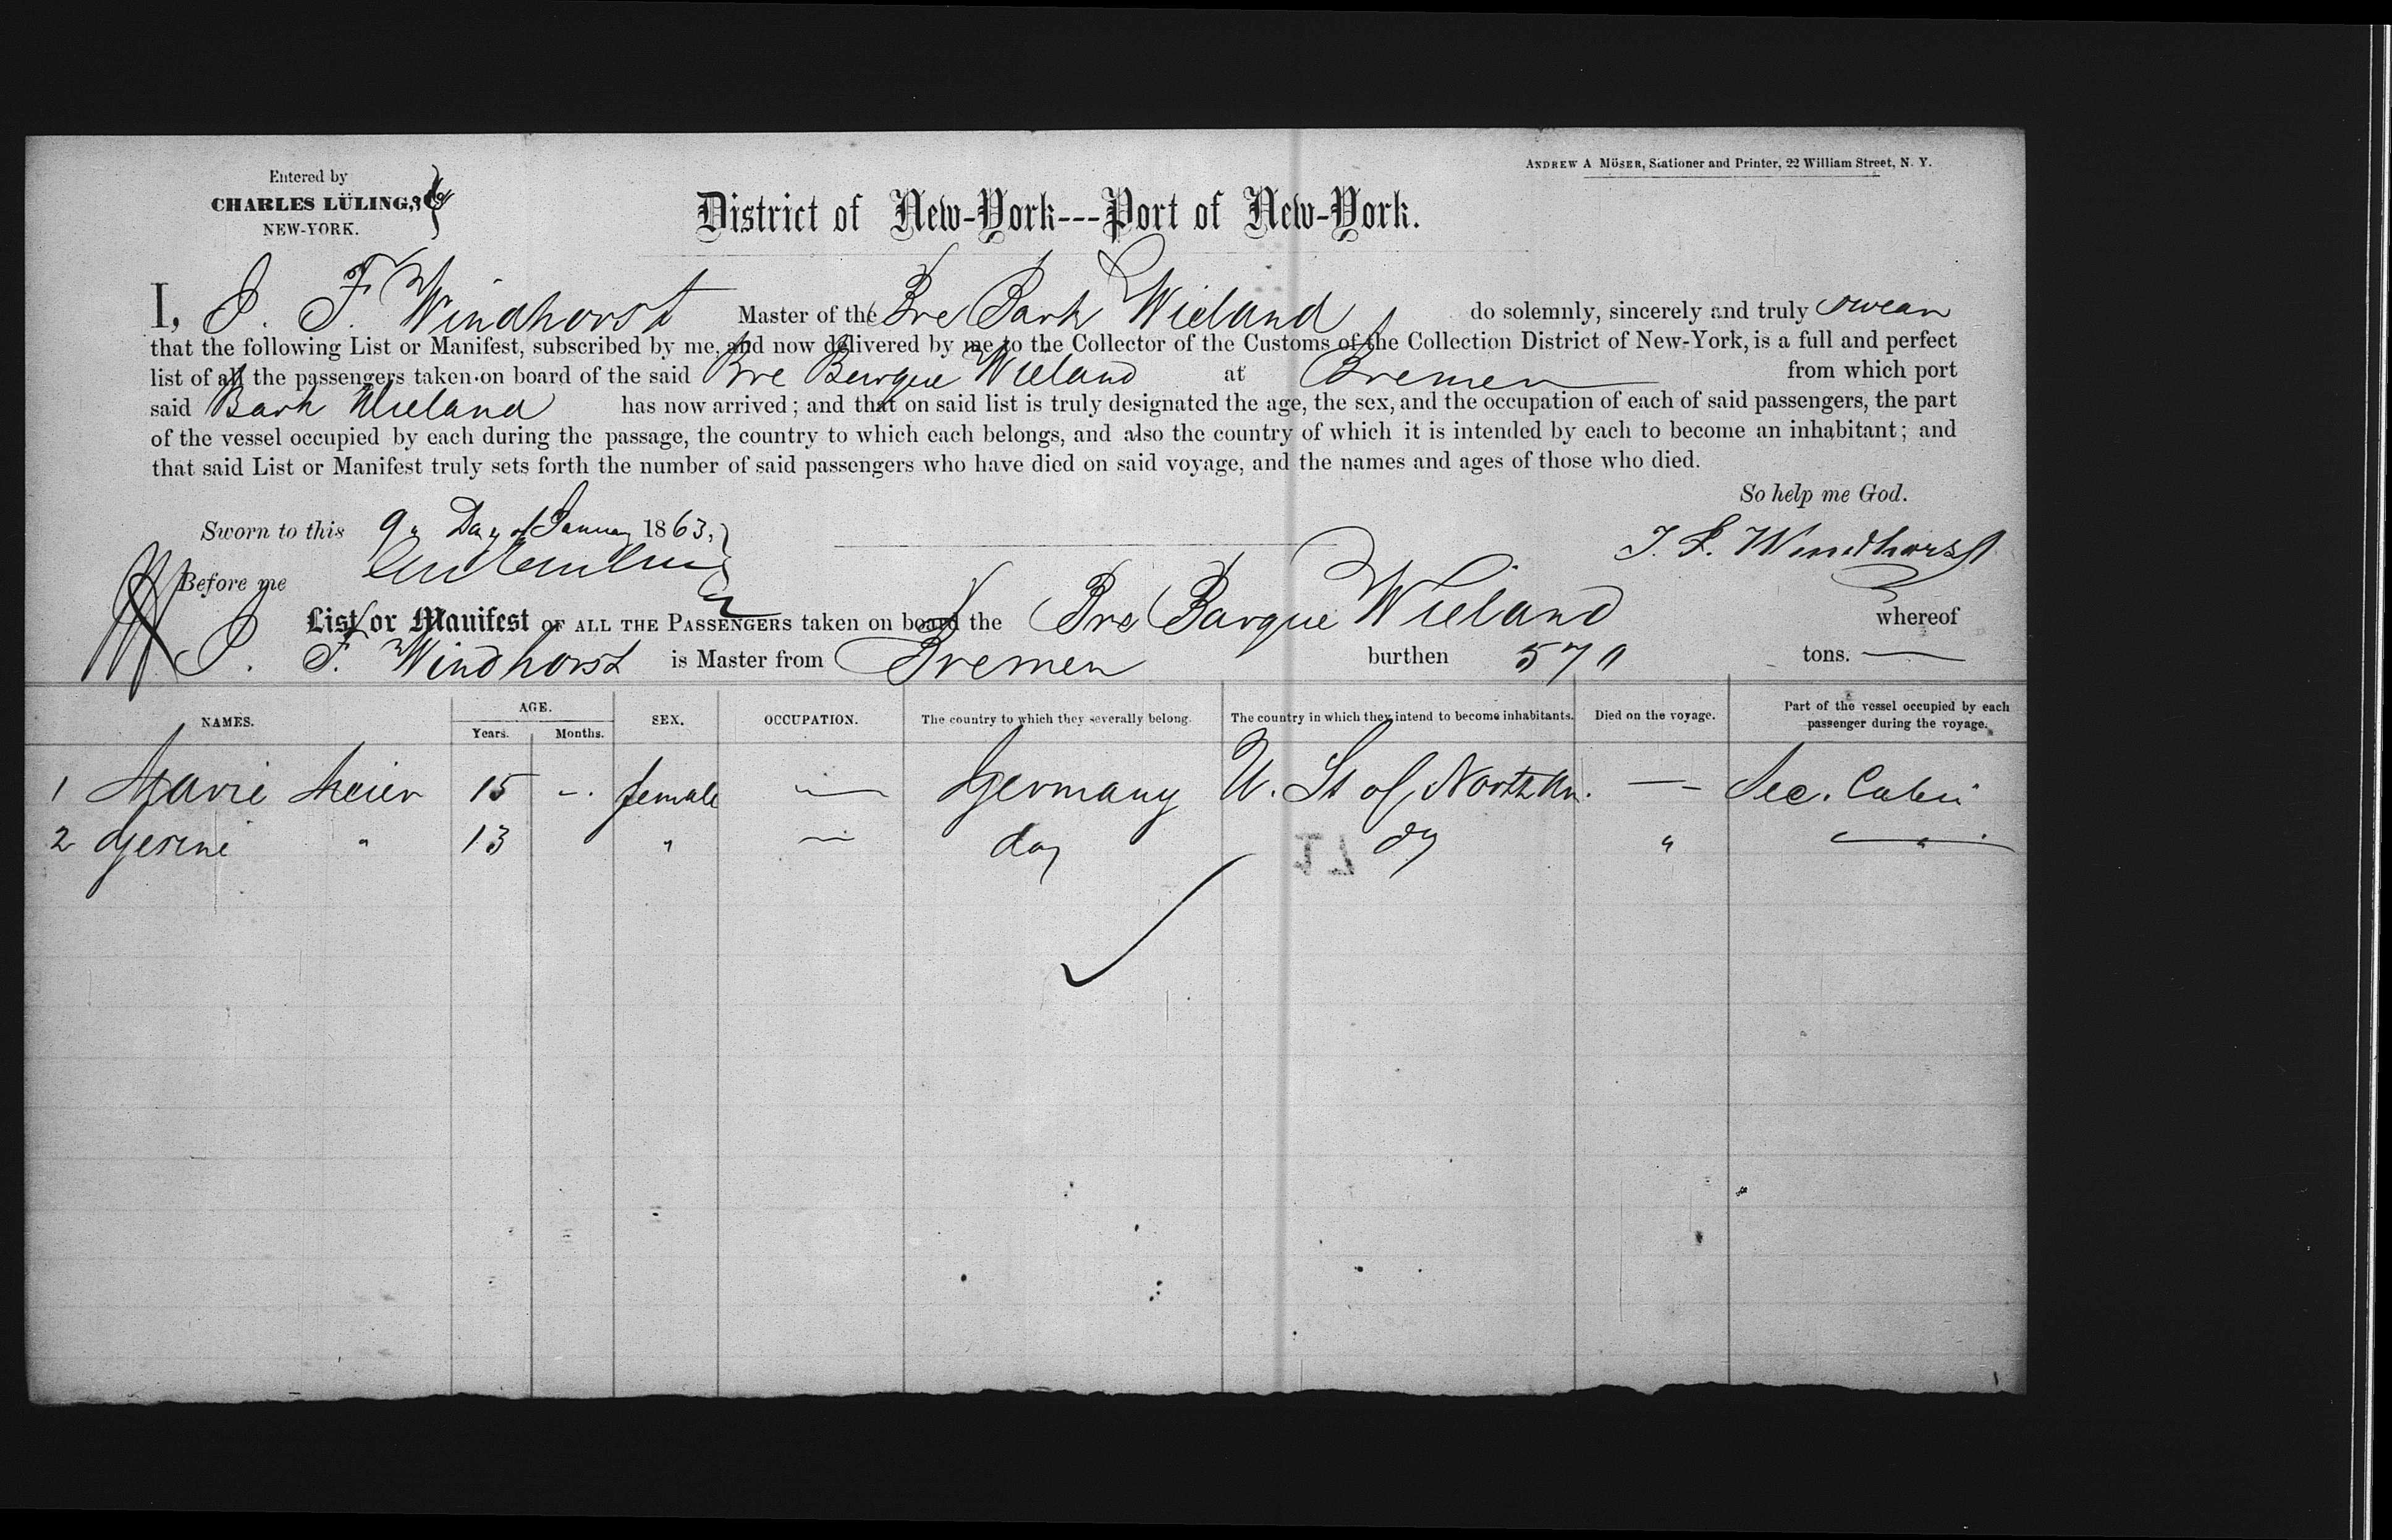 ANDREW A MÖSER, Stationer and Printer, 22 William Street, N. Y.
Entered by
CHARLES LÜLING, & Co
NEW-YORK.
District of New-York---Port of New-York.
I, J. F. Windhorst Master of the Bre Bark Wieland do solemnly, sincerely and truly swear
that the following List or Manifest, subscribed by me, and now delivered by me to the Collector of the Customs of the Collection District of New-York, is a full and perfect
list of all the passengers taken on board of the said Bre Barque Wieland at Bremen from which port
said Bark Wieland has now arrived; and that on said list is truly designated the age, the sex, and the occupation of each of said passengers, the part
of the vessel occupied by each during the passage, the country to which each belongs, and also the country of which it is intended by each to become an inhabitant; and
that said List or Manifest truly sets forth the number of said passengers who have died on said voyage, and the names and ages of those who died.
So help me God.
Sworn to this 9" Day of January 1863,
J. F. Windhorst
Before me
List or Manifest OF ALL THE PASSENGERS taken on board the Bre Barque Wieland whereof
J. F. Windhorst is Master from Bremen burthen 570 tons.
NAMES. AGE. Years. Months. SEX. OCCUPATION. The country to which they severally belong. The country in which they intend to become inhabitants. Died on the voyage. Part of the vessel occupied by each passenger during the voyage.
1 Marie Meier 15 -. female — Germany U. St of North Am. — Sec. Cabin
2 Gesine " 13 " — do do " "